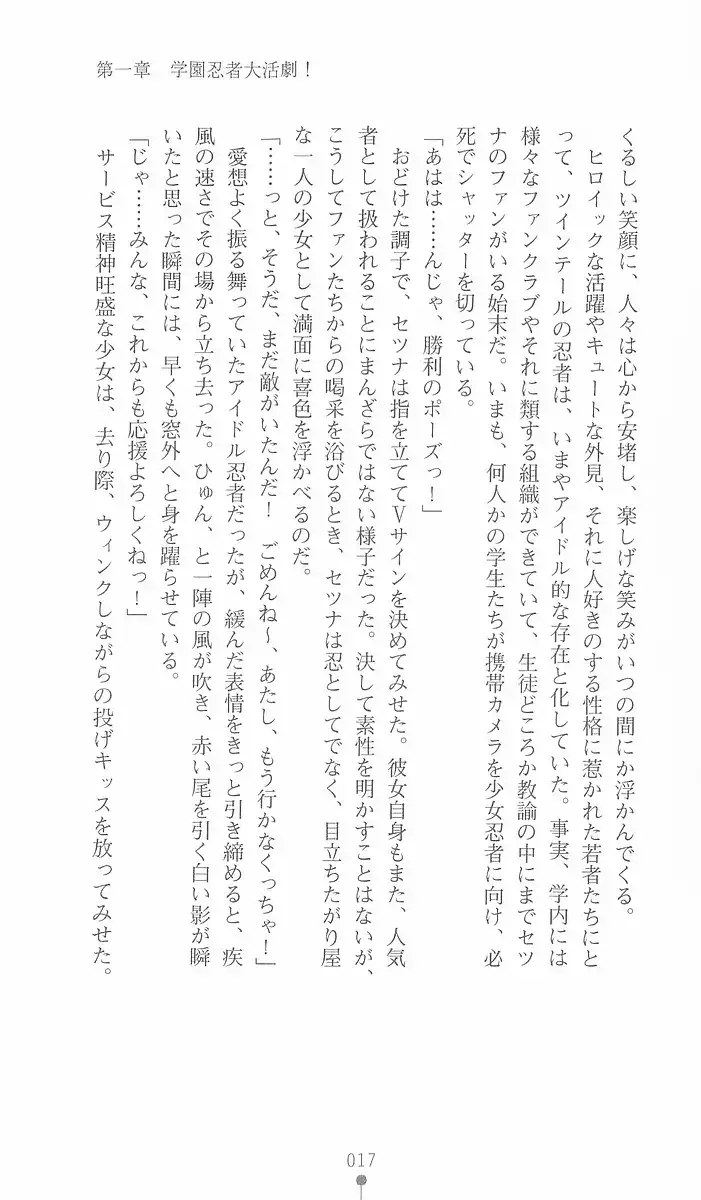 第一章　学園忍者大活劇！
くるしい笑顔に、人々は心から安堵し、楽しげな笑みがいつの間にか浮かんでくる。
　ヒロイックな活躍やキュートな外見、それに人好きのする性格に惹かれた若者たちにと
って、ツインテールの忍者は、いまやアイドル的な存在と化していた。事実、学内には
様々なファンクラブやそれに類する組織ができていて、生徒どころか教諭の中にまでセツ
ナのファンがいる始末だ。いまも、何人かの学生たちが携帯カメラを少女忍者に向け、必
死でシャッターを切っている。
「あはは……んじゃ、勝利のポーズっ！」
　おどけた調子で、セツナは指を立ててＶサインを決めてみせた。彼女自身もまた、人気
者として扱われることにまんざらではない様子だった。決して素性を明かすことはないが、
こうしてファンたちからの喝采を浴びるとき、セツナは忍としてでなく、目立ちたがり屋
な一人の少女として満面に喜色を浮かべるのだ。
「……っと、そうだ、まだ敵がいたんだ！　ごめんね～、あたし、もう行かなくっちゃ！」
　愛想よく振る舞っていたアイドル忍者だったが、緩んだ表情をきっと引き締めると、疾
風の速さでその場から立ち去った。ひゅん、と一陣の風が吹き、赤い尾を引く白い影が瞬
いたと思った瞬間には、早くも窓外へと身を躍らせている。
「じゃ……みんな、これからも応援よろしくねっ！」
　サービス精神旺盛な少女は、去り際、ウィンクしながらの投げキッスを放ってみせた。
017